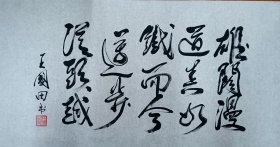 雄關漫
道真如
鐵而今
邁步
從頭越
王國田书